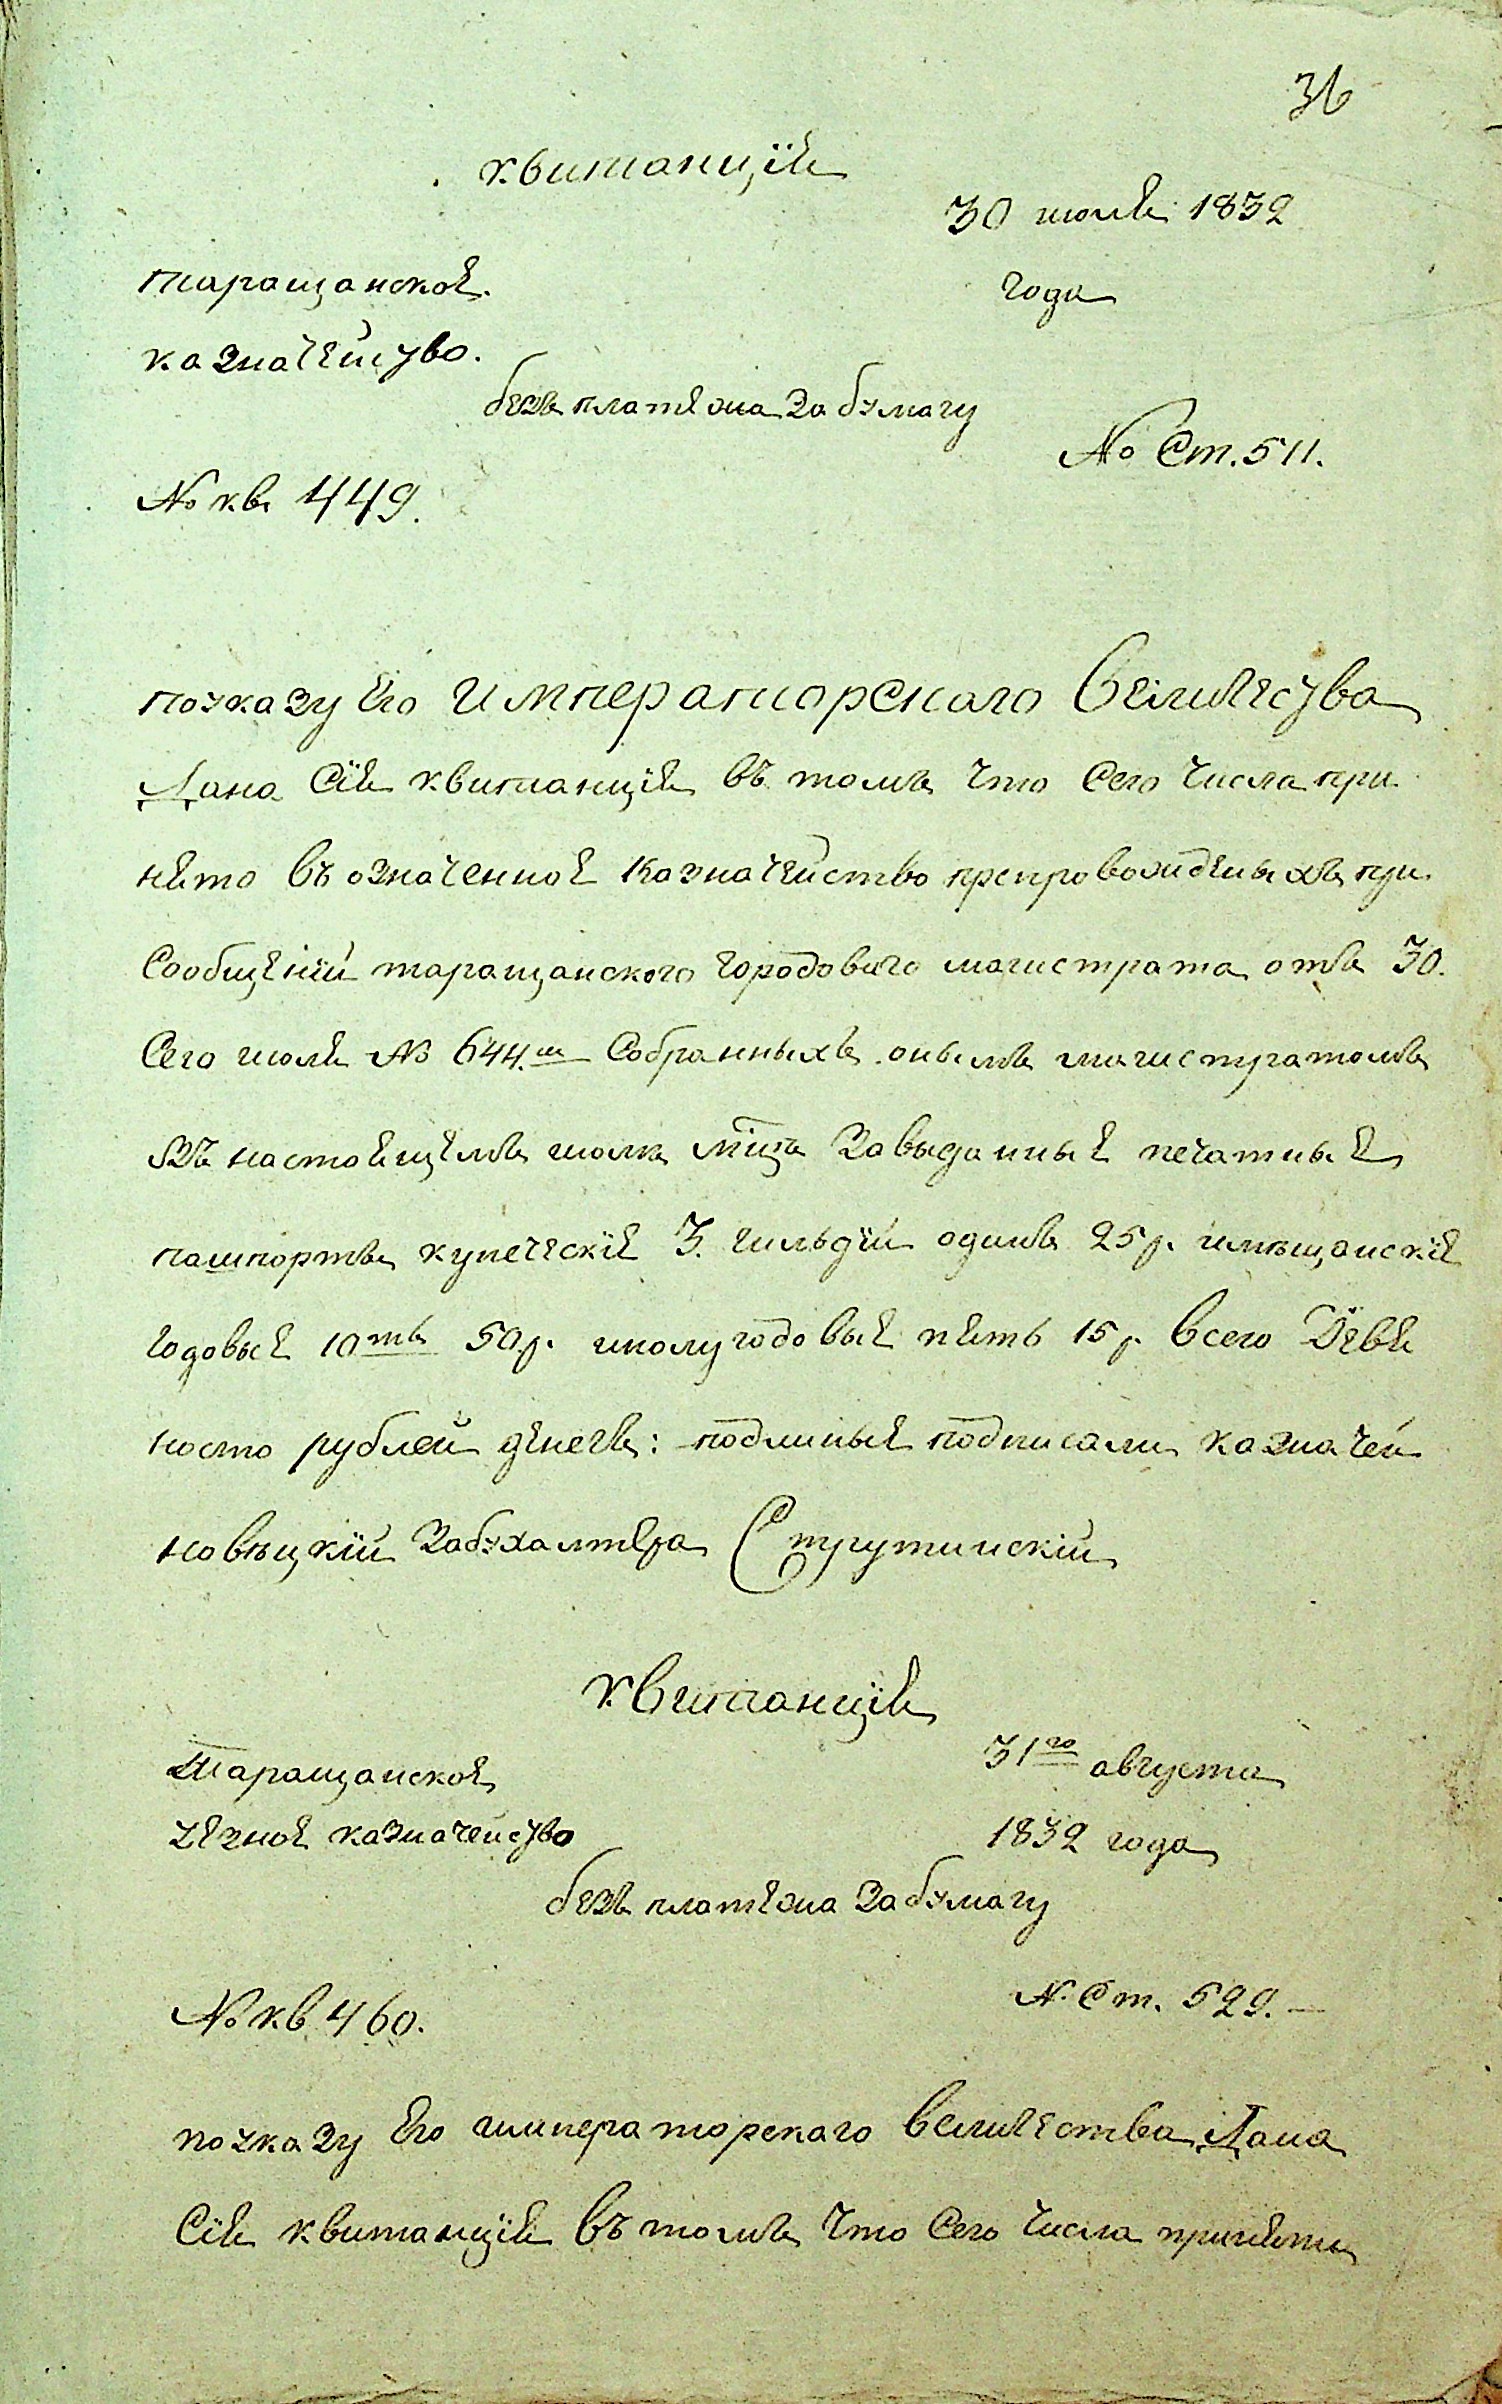 36
квитанція
30 июля 1832
таращанское
года
казначейство.
безъ платежа за бумагу
№ Ст. 511.
№ кв 449.
по указу Его императорскаго Величества
Дана Сія квитанція въ томъ что Сего числа при
нято въ означенное казначейство препровожденыхъ при
Сообщеніи таращанского городоваго магистрата отъ 30.
Сего июля № 644.м Собранныхъ онымъ магистратомъ
въ настоящемъ июля мца за выданные печатные
пашпорты купеческіе 3. гильдіи одинъ 25 р. имѣщанскіе
годовые 10ть 50 р. иполугодовые пять 15 р. всего Девя
носто рублей денегъ: подлиные подписали казначей
новѣцкій За бухалтера Струтинскій
квитанція
Таращанское
31го августа
уезное казначейство
1832 года
безъ платежа за бумагу
№ кв 460.
№ Ст. 529.
по указу Его императорскаго величества Дана
Сія квитанція въ томъ что Сего числа приняты